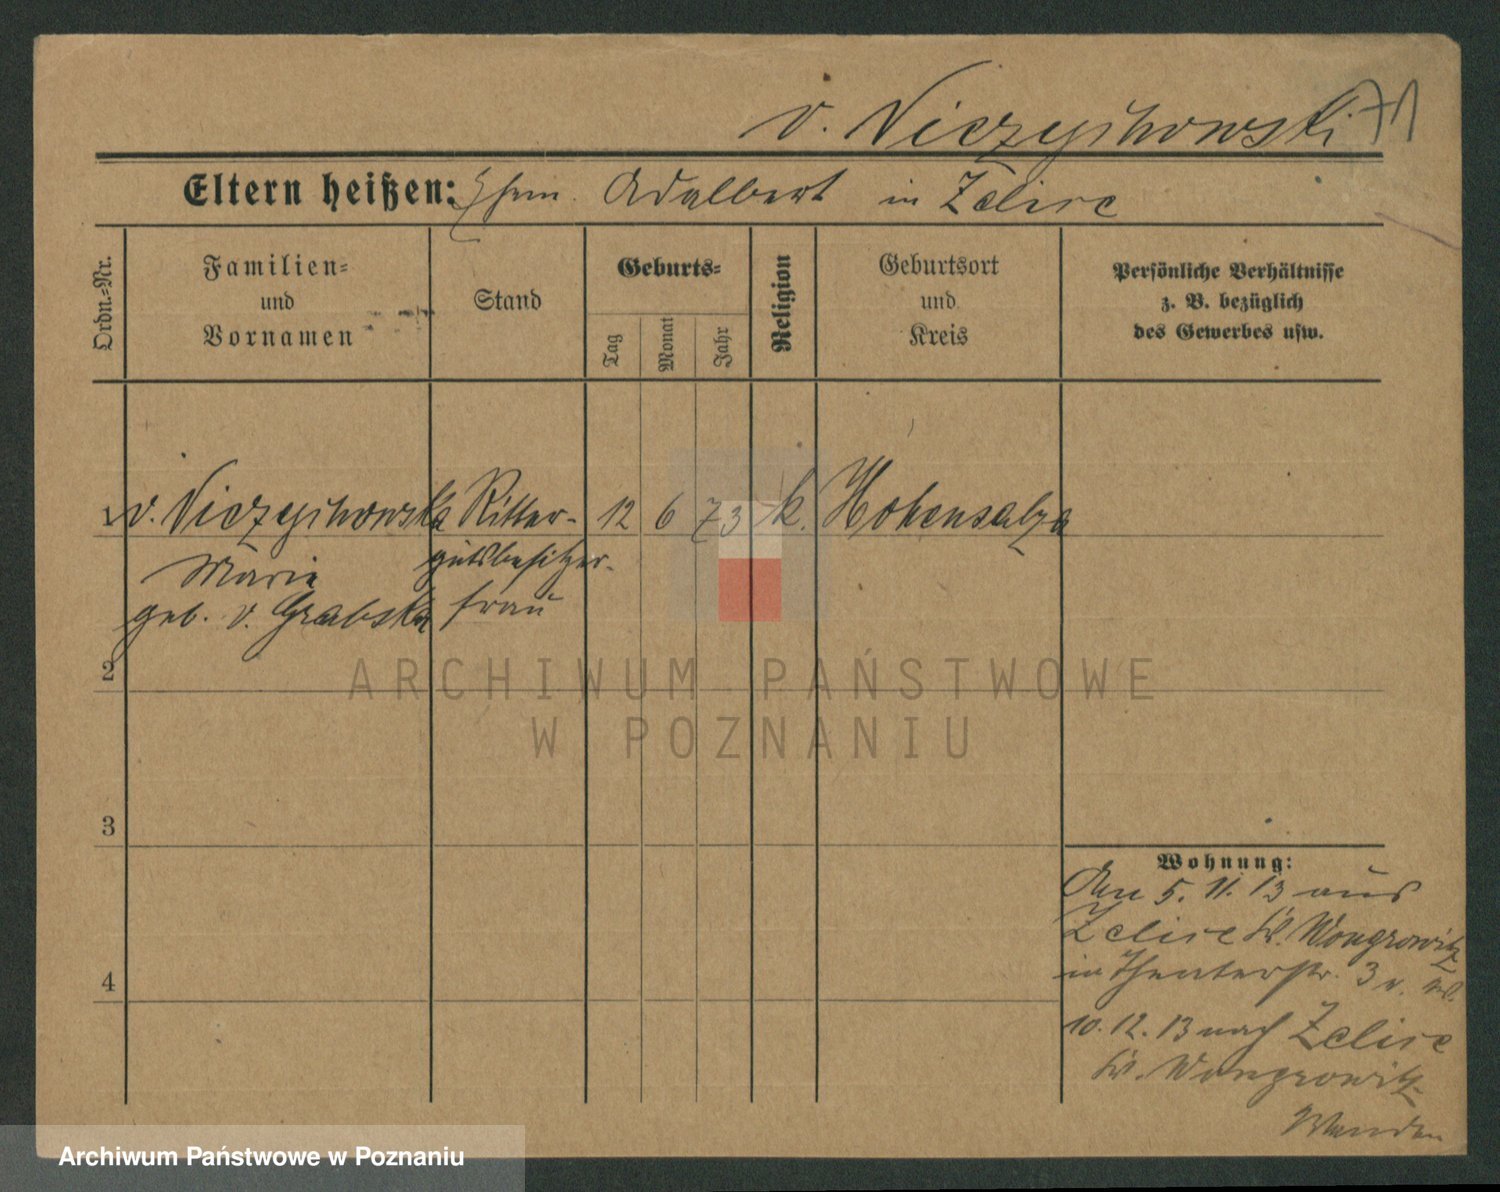 v. Niezychowski 71
Eltern heißen: Ehem. Adalbert in Zelice
Ordn.-Nr.
Familien-
und
Vornamen
Stand
Geburts-
Tag
Monat
Jahr
Religion
Geburtsort
und
Kreis
Persönliche Verhältnisse
z. B. bezüglich
des Gewerbes usw.
1 v. Niezychowska Ritter- 12 6 73 k. Hohensalza
Marie gutsbesitzer-
geb. v. Grabska frau
2
3
4
Wohnung:
Am 5. 11. 13 aus
Zelice Kr. Wongrowitz
in Theaterstr. 3
10. 12. 13 nach Zelice
Kr. Wongrowitz
ARCHIWUM PAŃSTWOWE
W POZNANIU
Archiwum Państwowe w Poznaniu